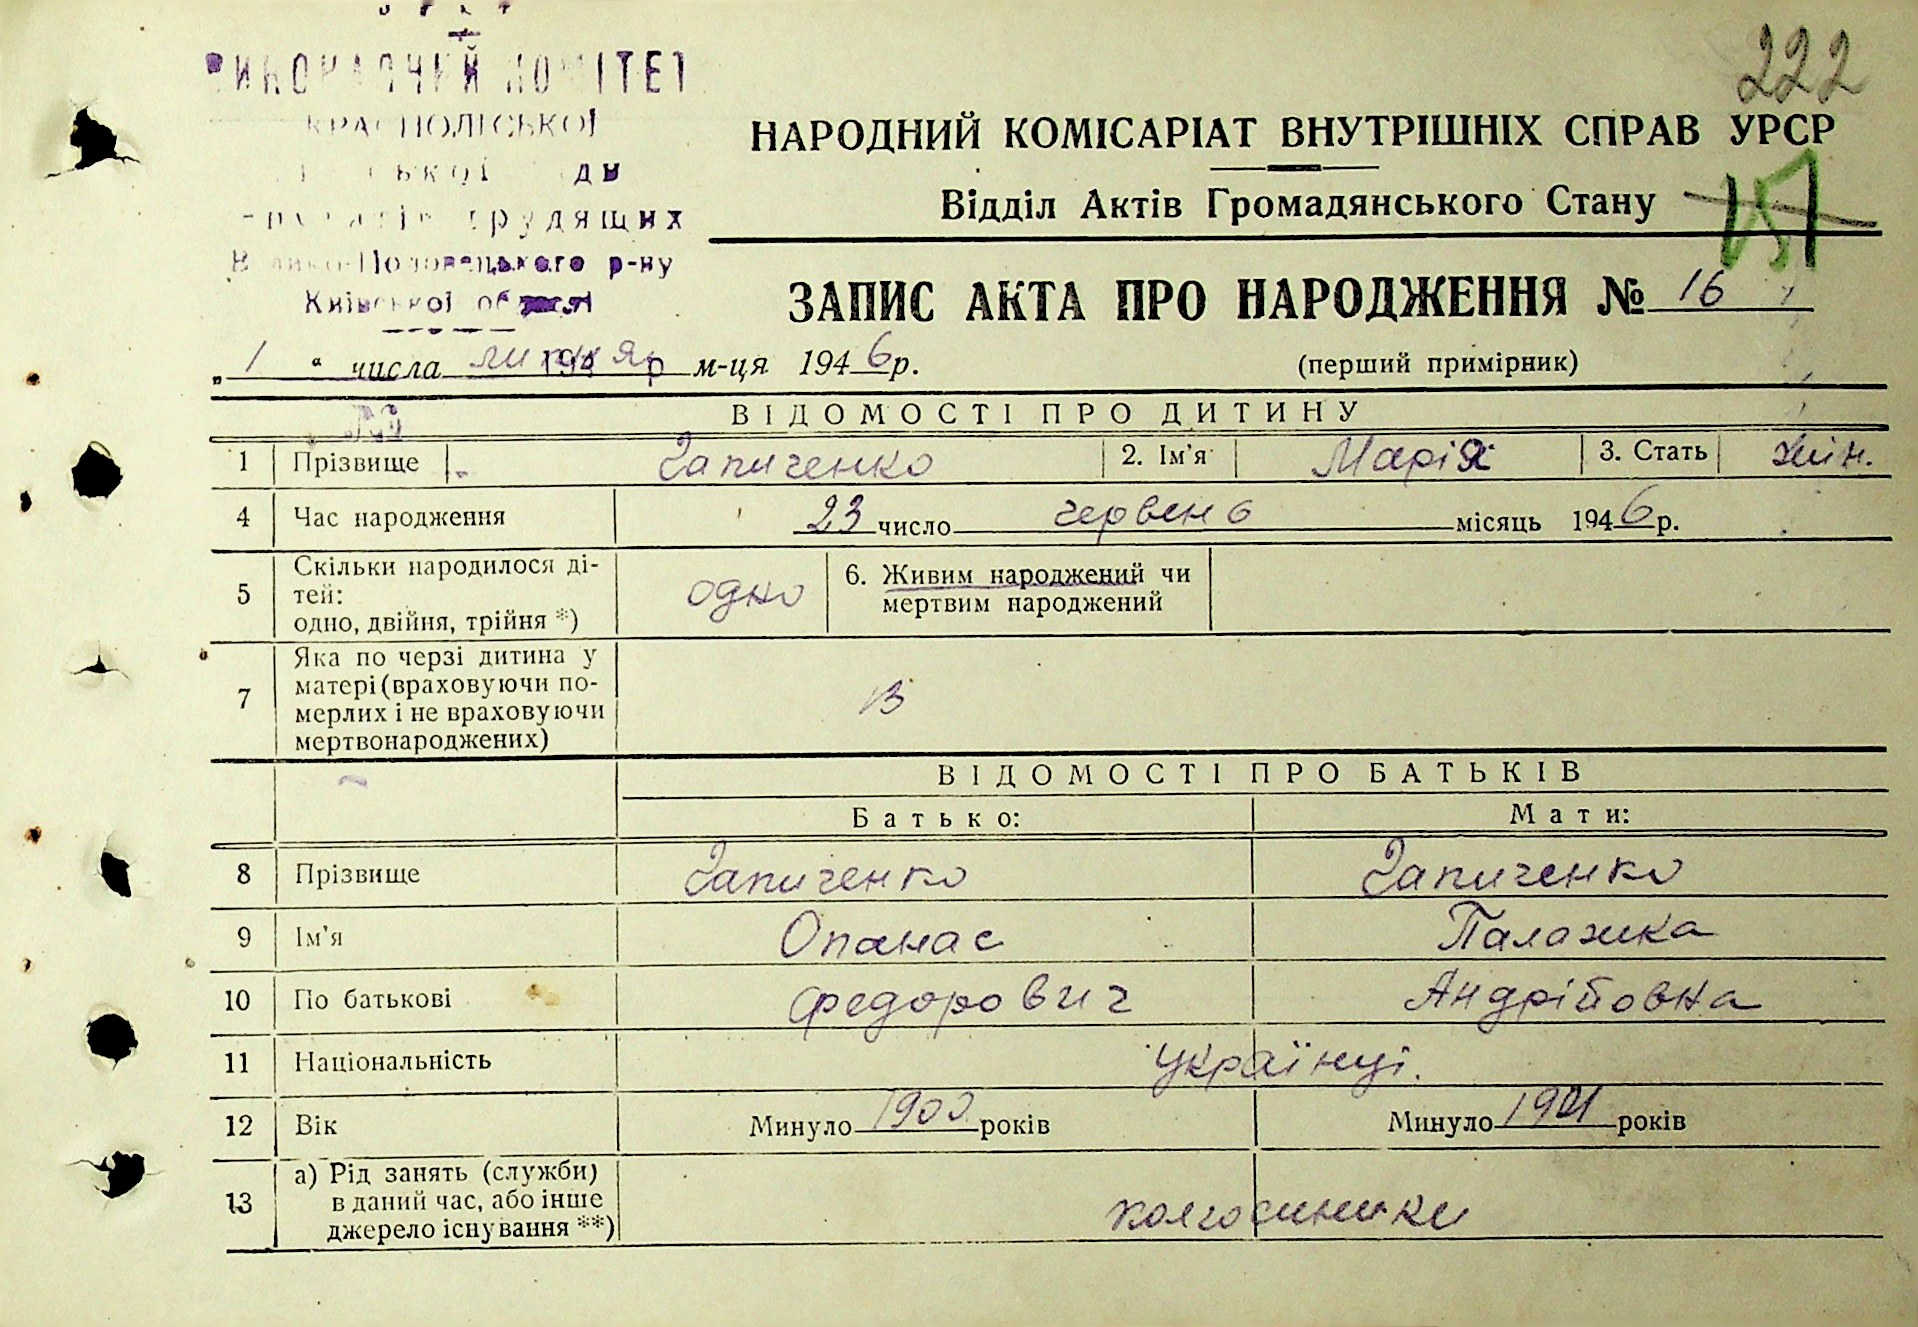 У Р С Р
ВИКОНАВЧИЙ КОМІТЕТ
КРАСНОЛІСЬКОЇ
трудящих
Велико-Половецького р-ну
Київської області
222
НАРОДНИЙ КОМІСАРІАТ ВНУТРІШНІХ СПРАВ УРСР
Відділ Актів Громадянського Стану
ЗАПИС АКТА ПРО НАРОДЖЕННЯ № 16
„ 1 “ числа липня м-ця 1946 р.
(перший примірник)
ВІДОМОСТІ ПРО ДИТИНУ
1 Прізвище Запиченко 2. Ім'я Марія 3. Стать жін.
4 Час народження 23 число червень місяць 1946 р.
5 Скільки народилося ді-
тей:
одно, двійня, трійня *) одно
6. Живим народжений чи
мертвим народжений
7 Яка по черзі дитина у
матері (враховуючи по-
мерлих і не враховуючи
мертвонароджених)
ВІДОМОСТІ ПРО БАТЬКІВ
Батько: Мати:
8 Прізвище Запиченко Запиченко
9 Ім'я Опанас Палажка
10 По батькові Федорович Андріївна
11 Національність українці.
12 Вік Минуло 1900 років Минуло років
13 а) Рід занять (служби)
в даний час, або інше
джерело існування **) колгоспники